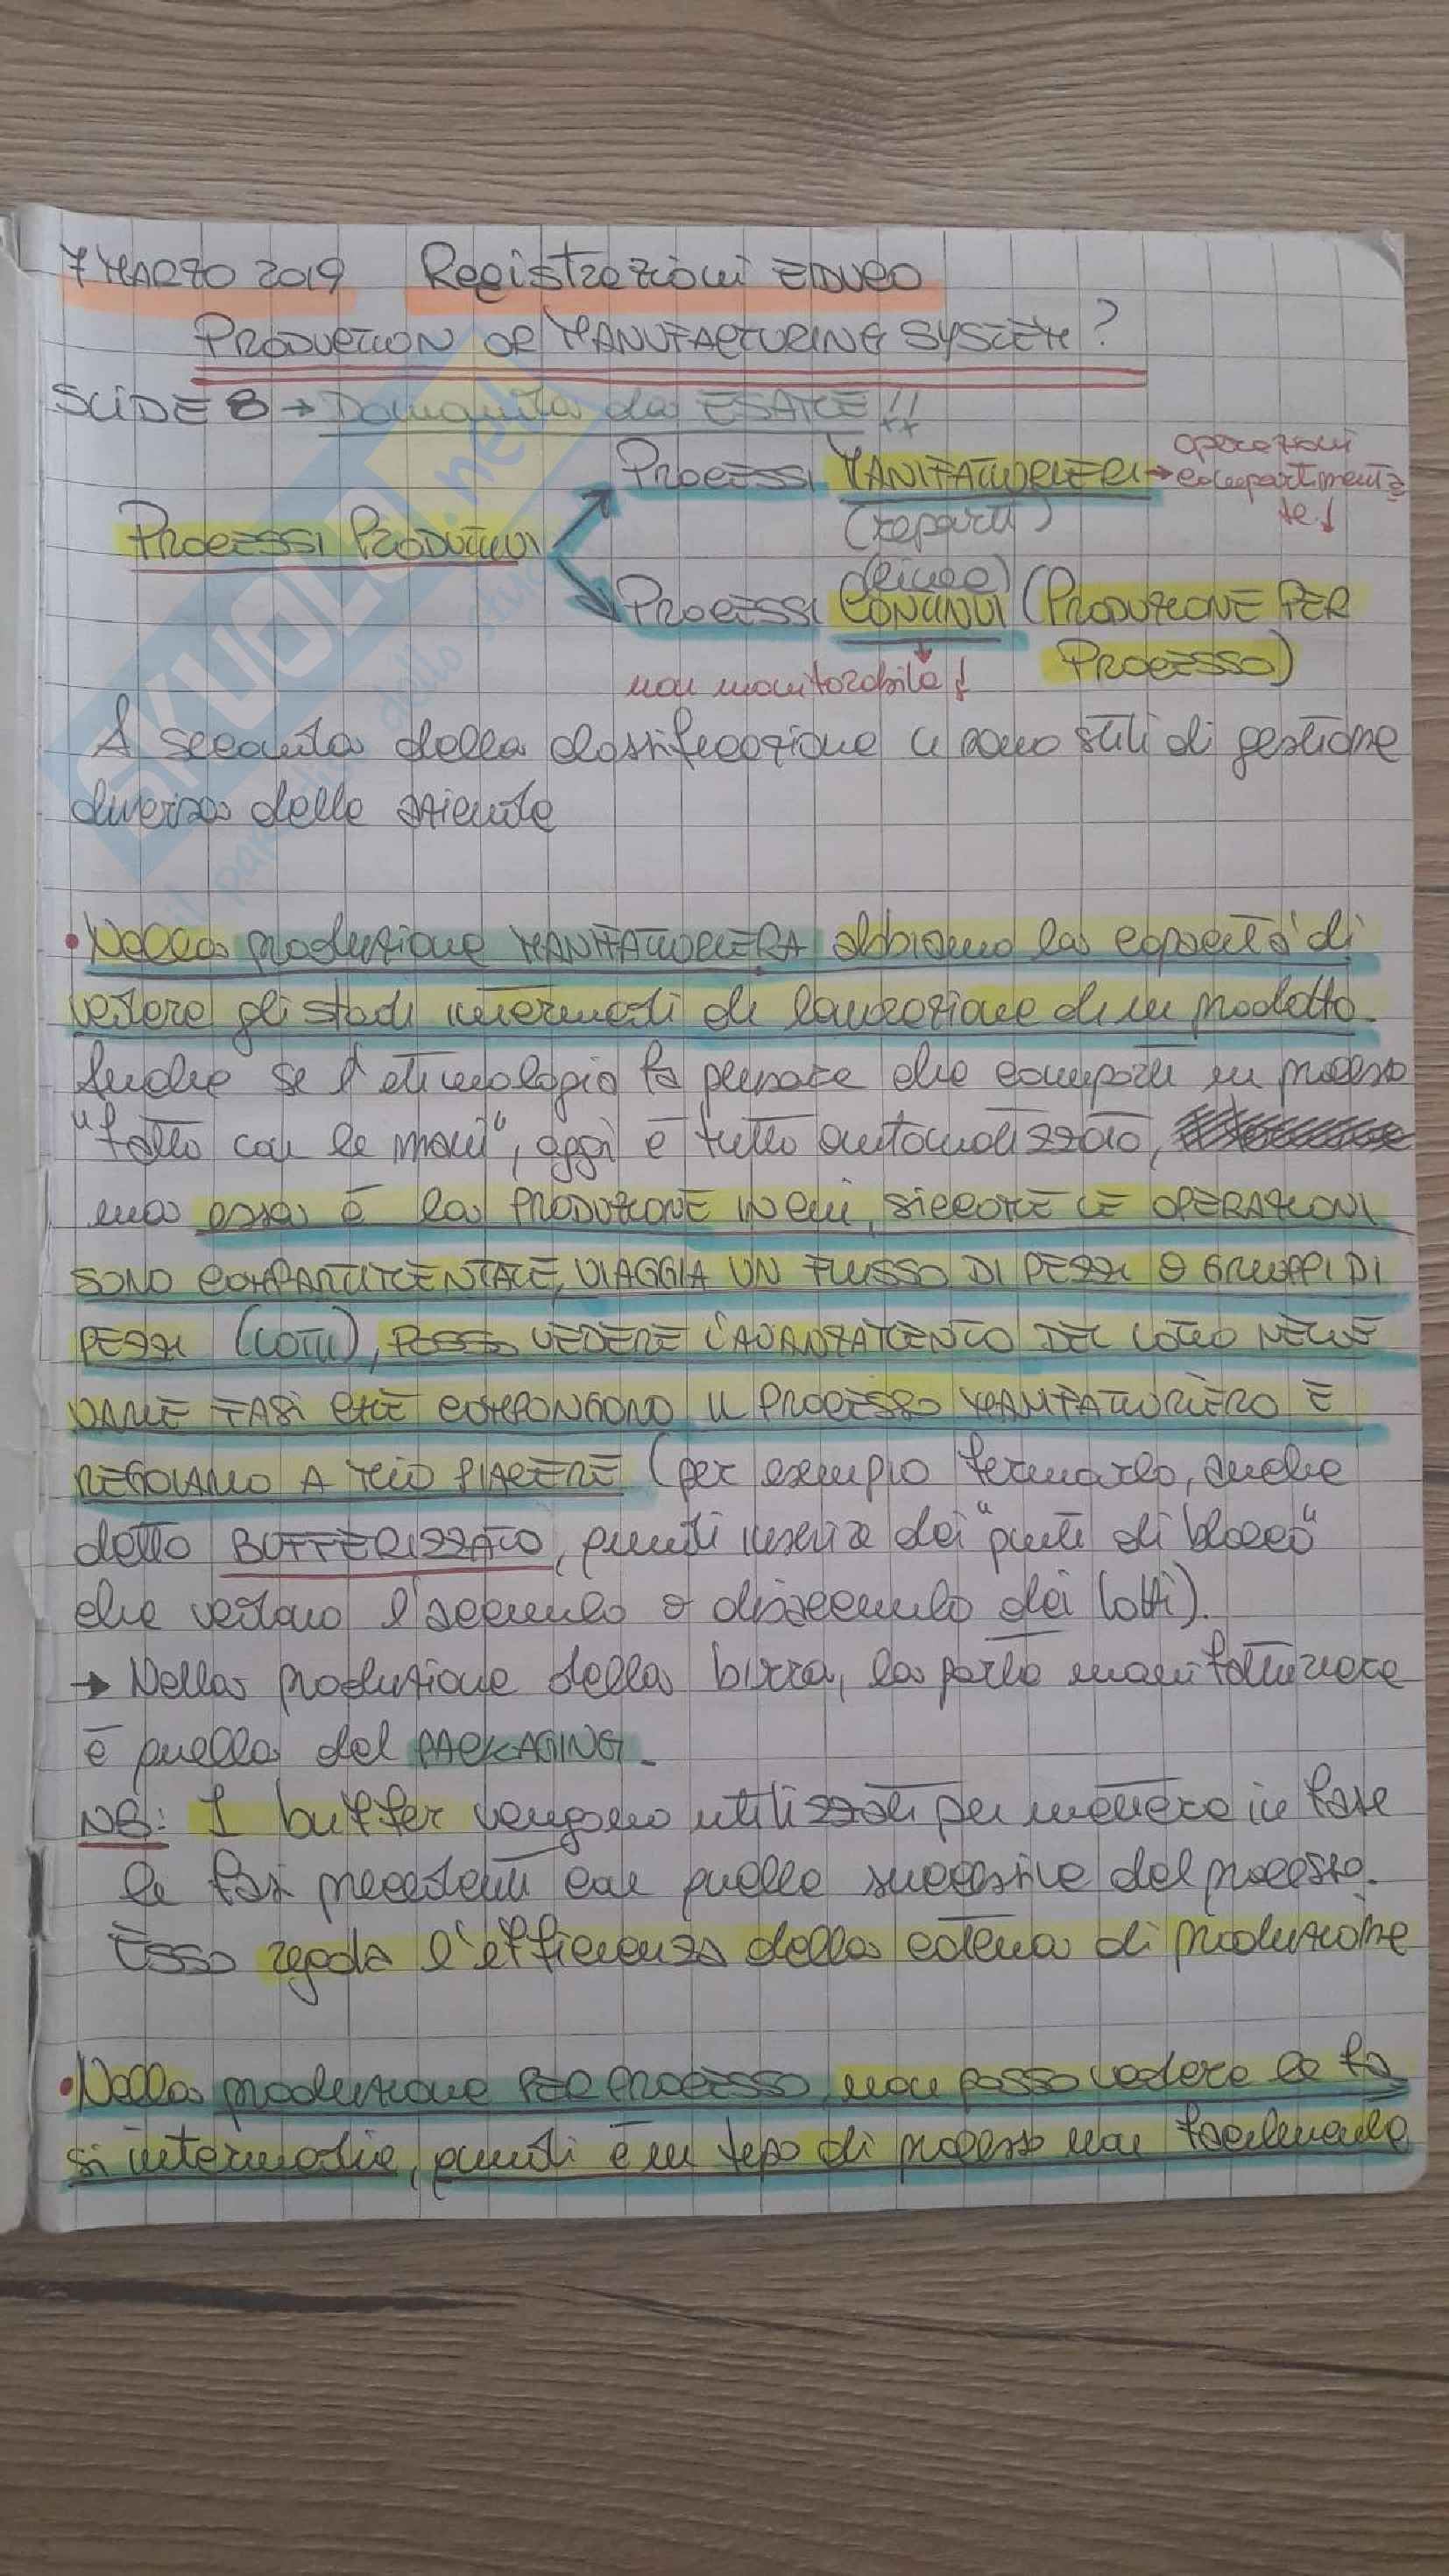 7 MARZO 2019 Registrazioni
PRODUCTION OR MANUFACTURING SYSTEM?
SLIDE 8 → Domanda da ESAME!!
PROCESSI MANIFATTURIERI → operazioni
compartimenta
te!
(reparti)
PROCESSI PRODUTTIVI
(linee)
PROCESSI CONTINUI (PRODUZIONE PER
PROCESSO)
non monitorabile!
A seconda della classificazione ci sono stili di gestione
diversa delle aziende
• Nella produzione MANIFATTURIERA abbiamo la capacità di
vedere gli stadi intermedi di lavorazione di un prodotto.
Anche se l'etimologia fa pensare che comporti un processo
"fatto con le mani", oggi è tutto automatizzato,
ma essa è la PRODUZIONE IN CUI, SICCOME LE OPERAZIONI
SONO COMPARTIMENTATE, VIAGGIA UN FLUSSO DI PEZZI O GRUPPI DI
PEZZI (LOTTI), POSSO VEDERE L'AVANZAMENTO DEL LOTTO NELLE
VARIE FASI CHE COMPONGONO IL PROCESSO MANIFATTURIERO E
REGOLARLO A MIO PIACERE (per esempio fermarlo, anche
detto BUFFERIZZATO, quindi inserire dei "punti di blocco"
che vedano l'accumulo o disaccumulo dei lotti).
→ Nella produzione della birra, la parte manifatturiera
è quella del PACKAGING.
NB: I buffer vengono utilizzati per mettere in fase
le fasi precedenti con quelle successive del processo.
Esso regola l'efficienza della catena di produzione
• Nella produzione PER PROCESSO non posso vedere le fa
si intermedie, quindi è un tipo di processo non facilmente
SKUOLA.net
il paradiso dello studente